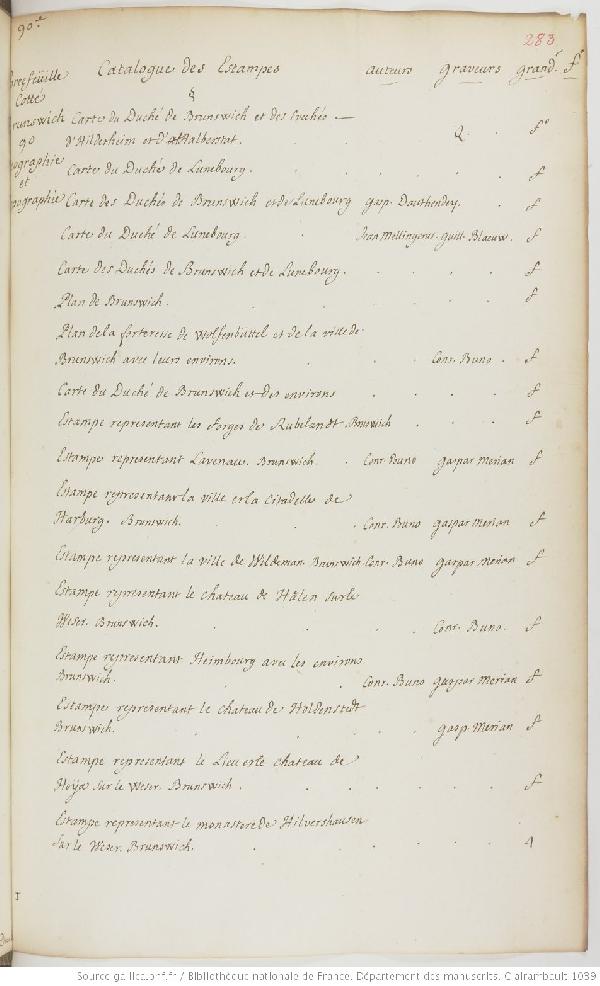 90.e
283
Catalogue des Estampes auteurs graveurs grandr f
Cotte
90
et
§
Carte du Duché de Brunswich et des Evechés
d'Hilderheim et d'Halberstat. 2. fo
Carte du Duché de Lunebourg. f
Carte des Duchés de Brunswich et de Lunebourg gasp. Dauthendey. f
Carte du Duché de Lunebourg. Jean Mellingerus. guill. Blaeuw. f
Carte des Duchés de Brunswich et de Lunebourg. f
Plan de Brunswich. f
Plan de la forteresse de Wolfenbuttel et de la ville de
Brunswich avec leurs environs. Conr. Buno. f
Carte du Duché de Brunswich et des environs f
Estampe representant les forges de Rubelandt Brunswich f
Estampe representant Lavenau. Brunswich. Conr. Buno gaspar Merian f
Estampe representant la ville et la Citadelle de
Harburg. Brunswich. Conr. Buno gaspar Merian f
Estampe representant la ville de Wildeman. Brunswich Conr. Buno gaspar Merian f
Estampe representant le chateau de Holen sur le
Weser. Brunswich. Conr. Buno. f
Estampe representant Heimbourg avec les environs
Brunswich. Conr. Buno gaspar Merian f
Estampe representant le chateau de Holdenstedt
Brunswich. gasp. Merian f
Estampe representant le Lieu et le chateau de
Hoÿa sur le Weser. Brunswich. f
Estampe representant le monastere de Hilvershausen
sur le Weser. Brunswich. 4
Source gallica.bnf.fr / Bibliothèque nationale de France. Département des manuscrits. Clairambault 1039